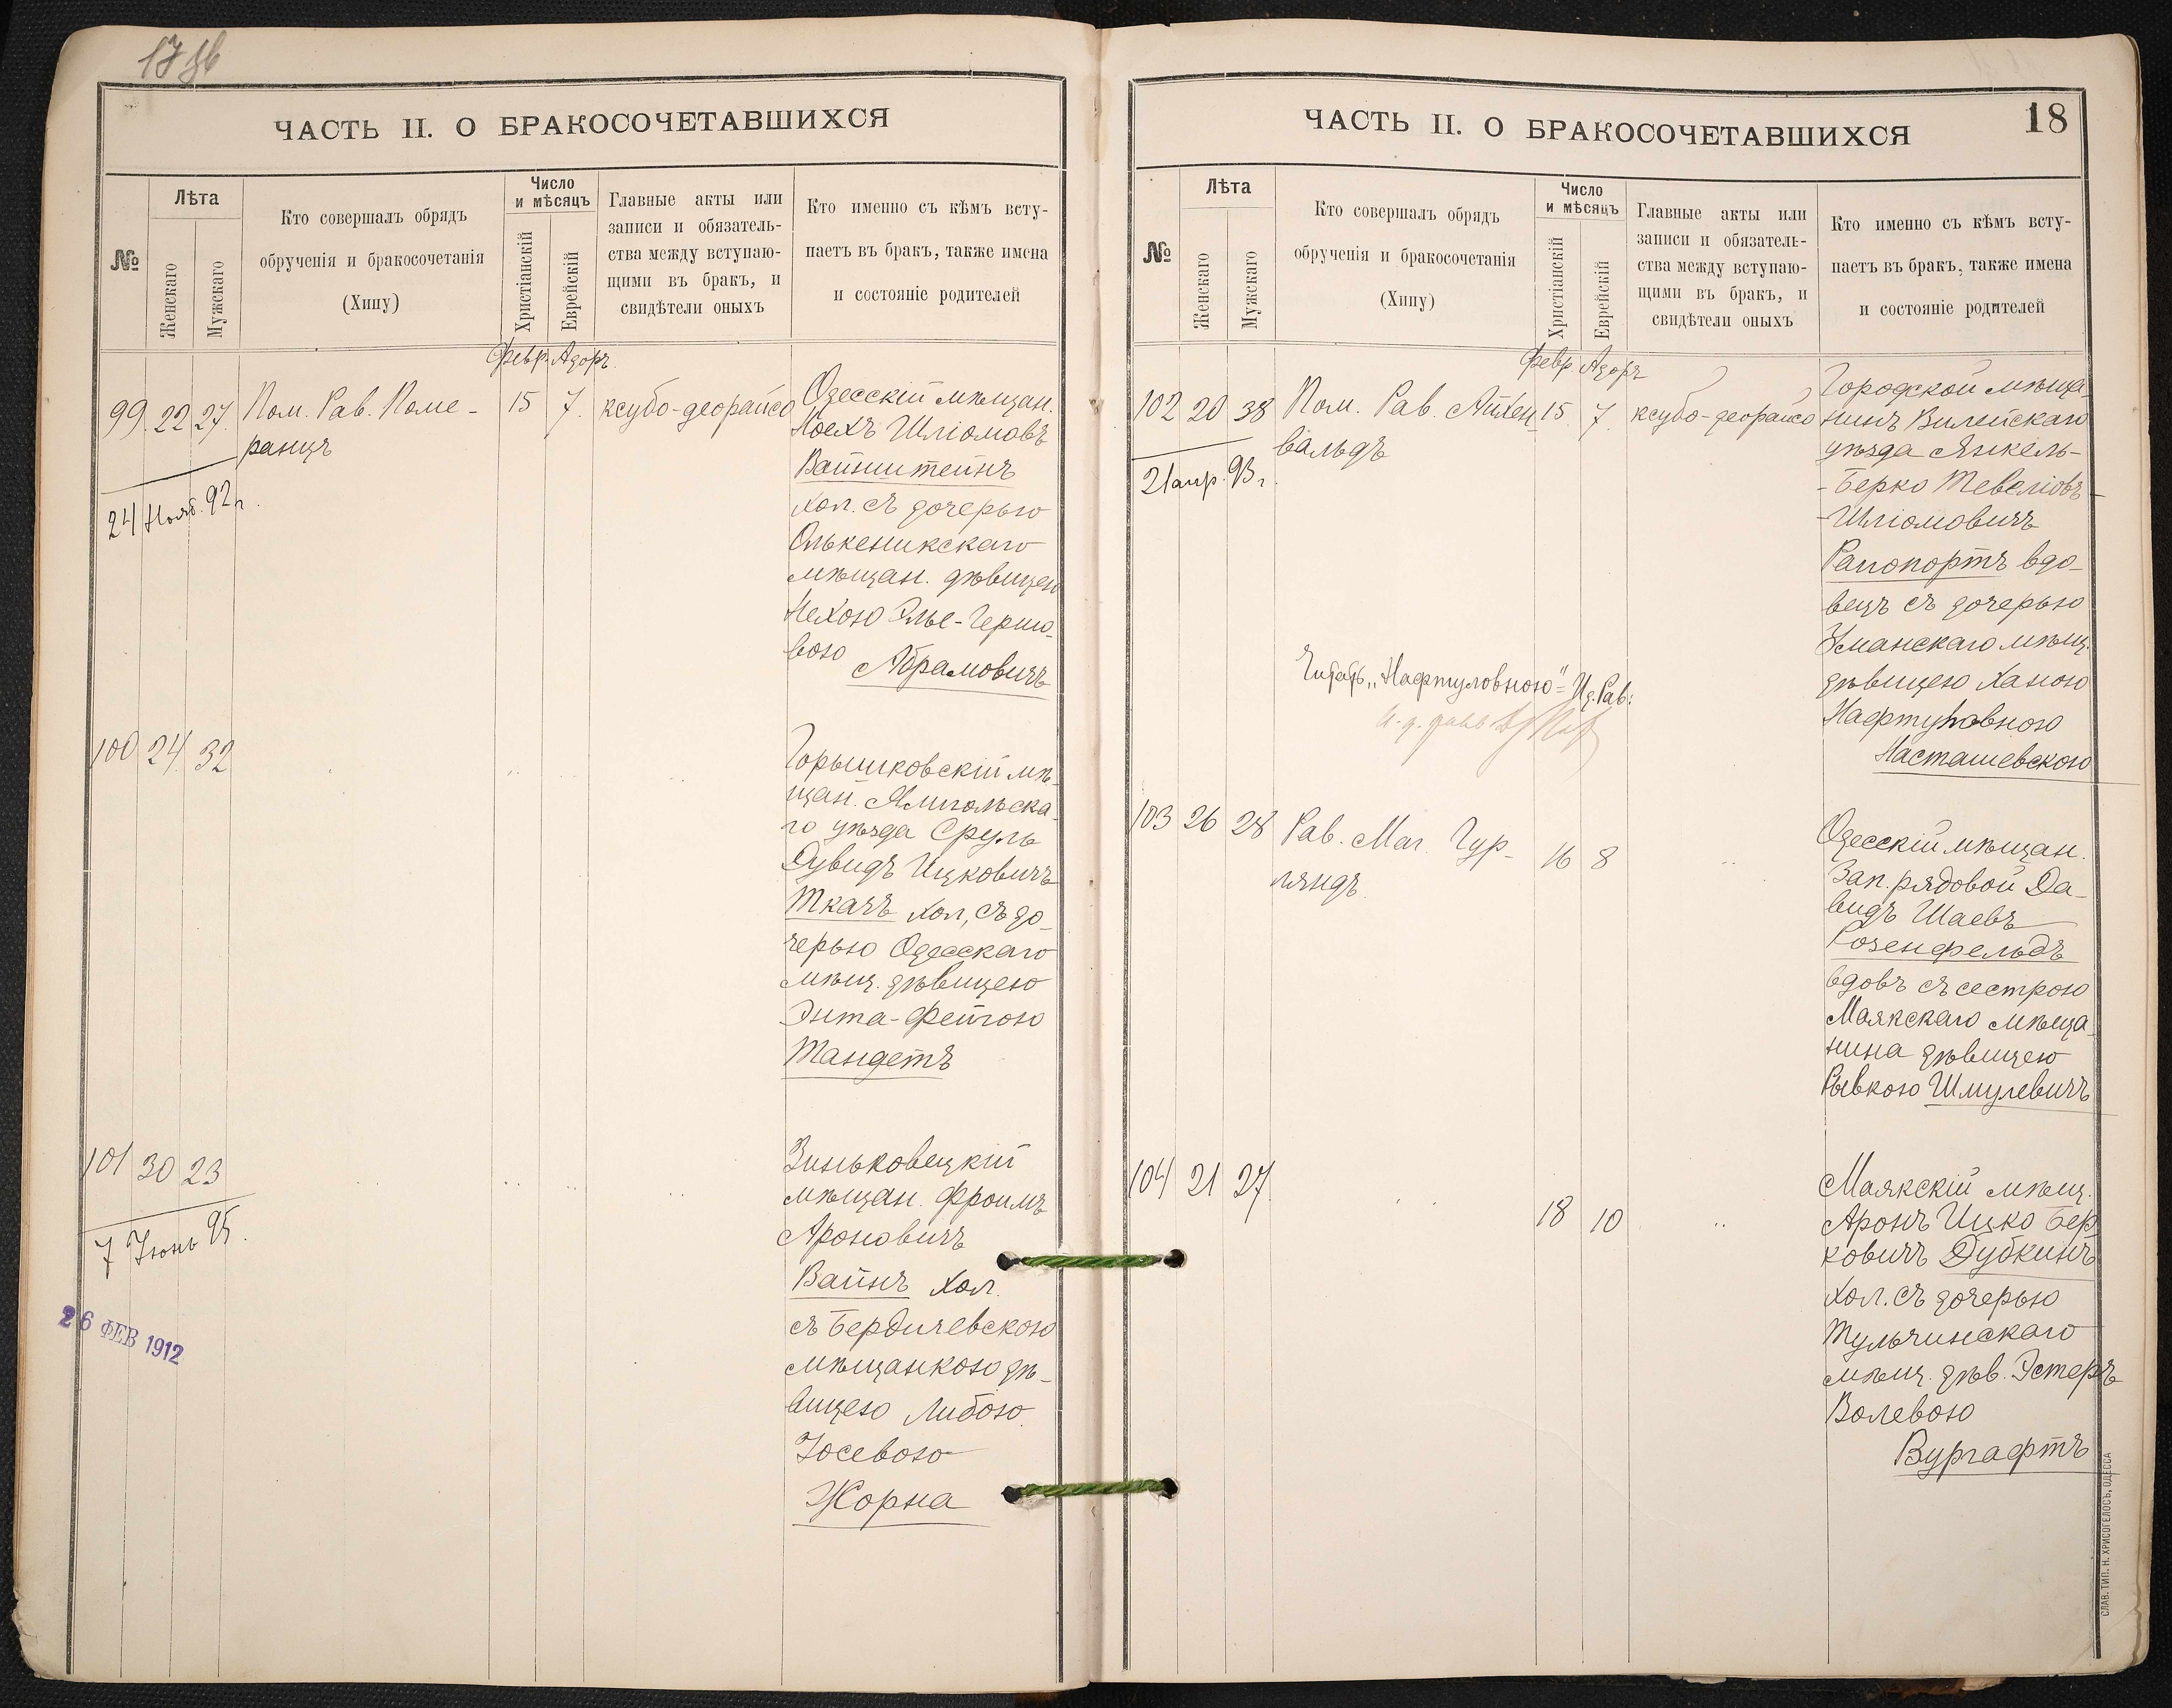 ЧАСТЬ II. О БРАКОСОЧЕТАВШИХСЯ
№
Лѣта
Женскаго
Мужскаго
Кто совершалъ обрядъ
обрученія и бракосочетанія
(Хипу)
Число
и мѣсяцъ
Христіанскій
Еврейскій
Главные акты или
записи и обязатель-
ства между вступаю-
щими въ бракъ, и
свидѣтели оныхъ
Кто именно съ кѣмъ всту-
паетъ въ бракъ, также имена
и состояніе родителей
Февр. Адоръ.
99. 22 27. Пом. Рав. Поме- 15 7. ксубо-деорайсо
ранцъ
24 Нояб. 92 г.
Одесскій мѣщан.
Шліомовъ
Вайнштейнъ
хол. съ дочерью
Олькеникскаго
мѣщан. дѣвицею
Нехою Элье-Герш-
вою Абрамовичъ
100 24 32
Горышковскій мѣ-
щан. Ямпольска-
го уѣзда Сруль
Дувидъ Ицковичъ
Ткачъ хол, съ до-
черью Одесскаго
мѣщ. дѣвицею
Энта-Фейгою
Тандетъ
101 30 23
7 Іюнь 95.
26 ФЕВ 1912
Зиньковецкій
мѣщан. Фроимъ
Ароновичъ
Вайнъ Хол.
съ Бердичевскою
мѣщанкою дѣ-
вицею Либою
Іосевою
Жорна
ЧАСТЬ II. О БРАКОСОЧЕТАВШИХСЯ
18
№
Лѣта
Женскаго
Мужскаго
Кто совершалъ обрядъ
обрученія и бракосочетанія
(Хипу)
Число
и мѣсяцъ
Христіанскій
Еврейскій
Главные акты или
записи и обязатель-
ства между вступаю-
щими въ бракъ, и
свидѣтели оныхъ
Кто именно съ кѣмъ всту-
паетъ въ бракъ, также имена
и состояніе родителей
Февр. Адоръ
102 20 38 Пом. Рав. Айхен- 15 7. ксубо-деорайсо
вальдъ
21 апр. 93 г.
Городской мѣща-
нинъ Вилейскаго
уѣзда Янкель-
-Берко Тевеліовъ-
-Шліомовичъ
Рапопортъ вдо-
вецъ съ дочерью
Уманскаго мѣщ.
дѣвицею Ханою
Нафтуловною
Насташевскою
Читать „Нафтуловною"
103 26 28 Рав. Маг. Гур- 16 8
ляндъ.
Одесскій мѣщан.
Зап. рядовой Да-
видъ Шаевъ
Розенфельдъ
вдовъ съ сестрою
Маякскаго мѣща-
нина дѣвицею
Рывкою Шмулевичъ
104 21 27 18 10
Маякскій мѣщ.
Аронъ Ицко Бер-
ковичъ Дубкинъ
хол. съ дочерью
Тульчинскаго
мѣщ. дѣв. Эстеръ
Волевою
Вургафтъ
СЛАВ. ТИП. Н. ХРИСОГЕЛОСЪ, ОДЕССА